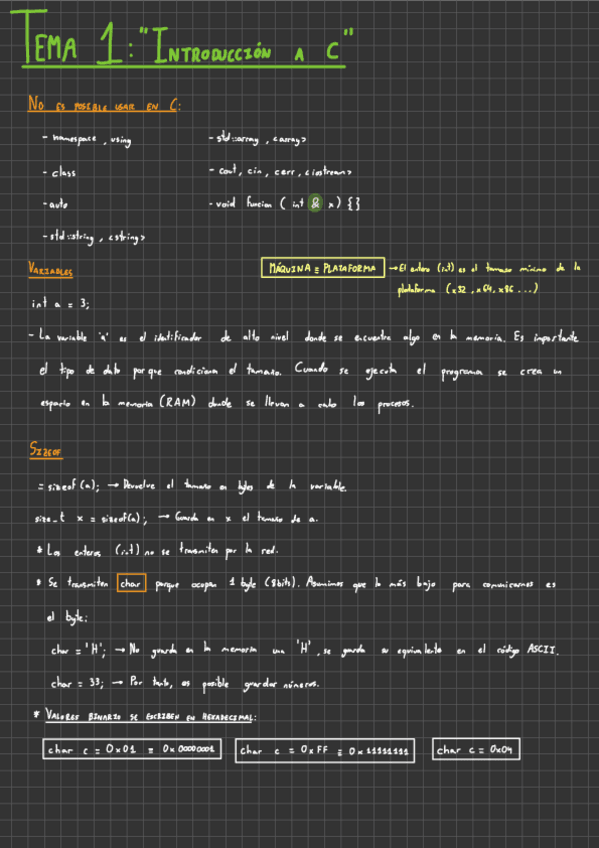 TEMA 1: "INTRODUCCIÓN A C"
NO ES POSIBLE USAR EN C:
- namespace, using
- class
- auto
- std::string, <string>
- std::array, <array>
- cout, cin, cerr, <iostream>
- void funcion ( int & x) {}
VARIABLES
MÁQUINA ≡ PLATAFORMA → El entero (int) es el tamaño mínimo de la
plataforma (x32, x64, x86 ...)
int a = 3;
- La variable 'a' es el identificador de alto nivel donde se encuentra algo en la memoria. Es importante
el tipo de dato porque condiciona el tamaño. Cuando se ejecuta el programa se crea un
espacio en la memoria (RAM) donde se llevan a cabo los procesos.
SIZEOF
= sizeof(a); → Devuelve el tamaño en bytes de la variable.
size_t x = sizeof(a); → Guarda en x el tamaño de a.
* Los enteros (int) no se transmiten por la red.
* Se transmiten char porque ocupan 1 byte (8bits). Asumimos que lo más bajo para comunicarnos es
el byte:
char = 'H'; → No guarda en la memoria una 'H', se guarda su equivalente en el código ASCII.
char = 33; → Por tanto, es posible guardar números.
* VALORES BINARIO SE ESCRIBEN EN HEXADECIMAL:
char c = 0x01 ≡ 0x00000001
char c = 0xFF ≡ 0x11111111
char c = 0x04